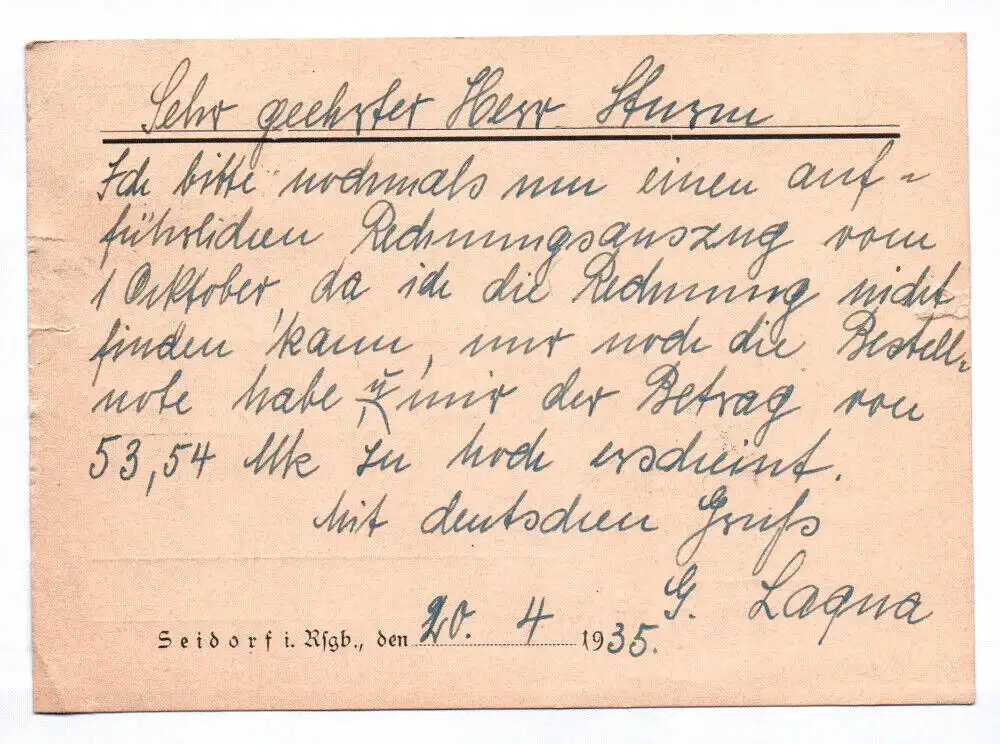 Sehr geehrter Herr Sturm
Ich bitte nochmals um einen auf-
führlichen Rechnungsauszug vom
1 Orktober, da ich die Rechnung nicht
finden kann, nur noch die Bestell-
note habe u mir der Betrag von
53,54 Mk zu hoch erscheint.
Mit deutschen Gruß
G. Laqua
Seidorf i. Rsgb., den 20. 4 1935.